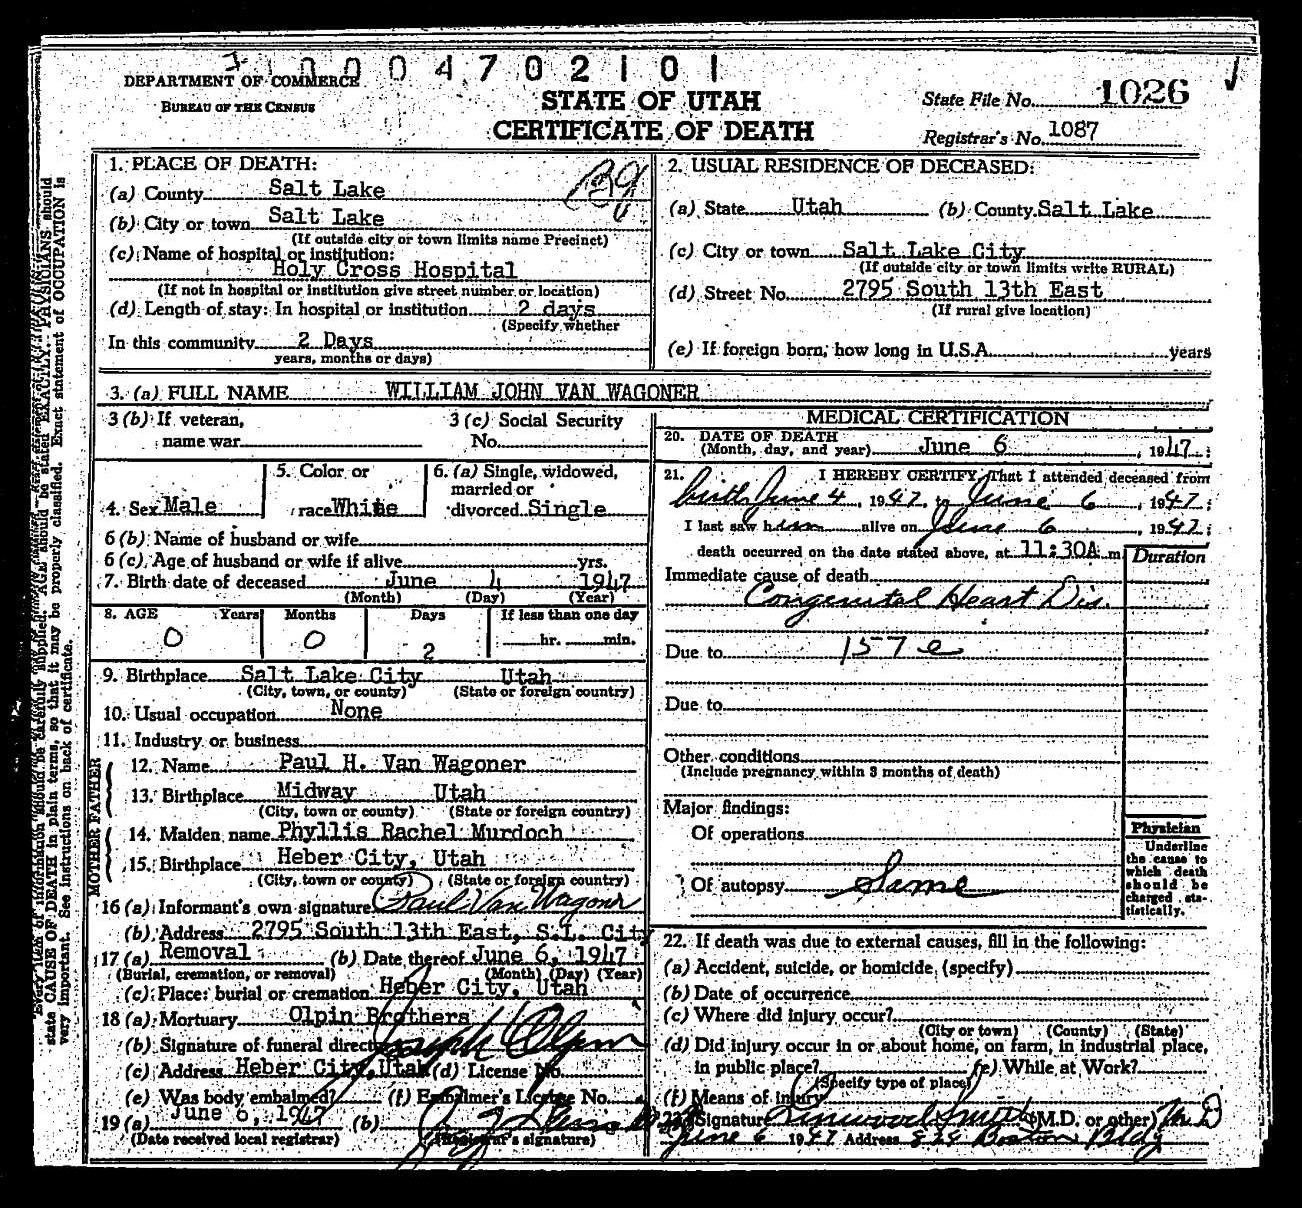 1 0 0 0 4 7 0 2 1 0 1
DEPARTMENT OF COMMERCE
BUREAU OF THE CENSUS
STATE OF UTAH
CERTIFICATE OF DEATH
State File No. 1026
Registrar's No. 1087
1. PLACE OF DEATH:
(a) County Salt Lake
(b) City or town Salt Lake
(If outside city or town limits name Precinct)
(c) Name of hospital or institution:
Holy Cross Hospital
(If not in hospital or institution give street number or location)
(d) Length of stay: In hospital or institution 2 days
(Specify whether
In this community 2 Days
years, months or days)
2. USUAL RESIDENCE OF DECEASED:
(a) State Utah (b) County Salt Lake
(c) City or town Salt Lake City
(If outside city or town limits write RURAL)
(d) Street No. 2795 South 13th East
(If rural give location)
(e) If foreign born, how long in U.S.A. years
3. (a) FULL NAME WILLIAM JOHN VAN WAGONER
3 (b) If veteran,
name war
3 (c) Social Security
No.
4. Sex Male
5. Color or
race White
6. (a) Single, widowed,
married or
divorced Single
6 (b) Name of husband or wife
6 (c) Age of husband or wife if alive yrs.
7. Birth date of deceased June 4 1947
(Month) (Day) (Year)
8. AGE Years Months Days If less than one day
0 0 2 hr. min.
9. Birthplace Salt Lake City Utah
(City, town, or county) (State or foreign country)
10. Usual occupation None
11. Industry or business
FATHER
12. Name Paul H. Van Wagoner
13. Birthplace Midway Utah
(City, town or county) (State or foreign country)
MOTHER
14. Maiden name Phyllis Rachel Murdoch
15. Birthplace Heber City, Utah
(City, town or county) (State or foreign country)
16 (a) Informant's own signature Paul Van Wagoner
(b) Address 2795 South 13th East, S.L. City
17 (a) Removal (b) Date thereof June 6, 1947
(Burial, cremation, or removal) (Month) (Day) (Year)
(c) Place: burial or cremation Heber City, Utah
18 (a) Mortuary Olpin Brothers
(b) Signature of funeral director Joseph Olpin
(c) Address Heber City, Utah (d) License No.
(e) Was body embalmed? (f) Embalmer's License No.
19 (a) June 6, 1947 (b)
(Date received local registrar) (Registrar's signature)
MEDICAL CERTIFICATION
20. DATE OF DEATH
(Month, day, and year) June 6, 1947
21. I HEREBY CERTIFY, That I attended deceased from
birth June 4, 1947, to June 6, 1947;
I last saw him alive on June 6 1947;
death occurred on the date stated above, at 11:30A m.
Duration
Immediate cause of death
Congenital Heart Dis.
Due to 157 e
Due to
Other conditions
(Include pregnancy within 3 months of death)
Major findings:
Of operations
Of autopsy Same
Physician
Underline
the cause to
which death
should be
charged sta-
tistically.
22. If death was due to external causes, fill in the following:
(a) Accident, suicide, or homicide, (specify)
(b) Date of occurrence
(c) Where did injury occur?
(City or town) (County) (State)
(d) Did injury occur in or about home, on farm, in industrial place,
in public place? (e) While at Work?
(Specify type of place)
(f) Means of injury
Signature (M.D. or other) M D
June 6 1947 Address Boston Bldg
state CAUSE OF DEATH in plain terms, so that it may be properly classified. Exact statement of OCCUPATION is
very important. See instructions on back of certificate.